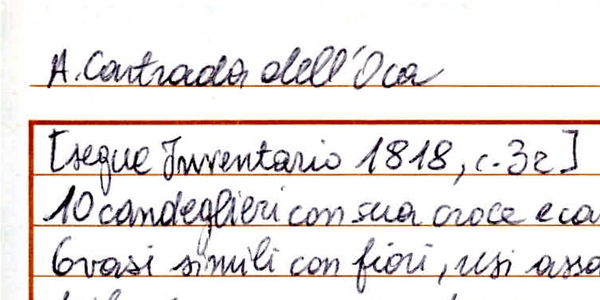 A. Contrada dell'Oca
[segue Inventario 1818, c. 3r.]
10 candeglieri con sua croce e ca
6 vasi simili con fiori, resi assa